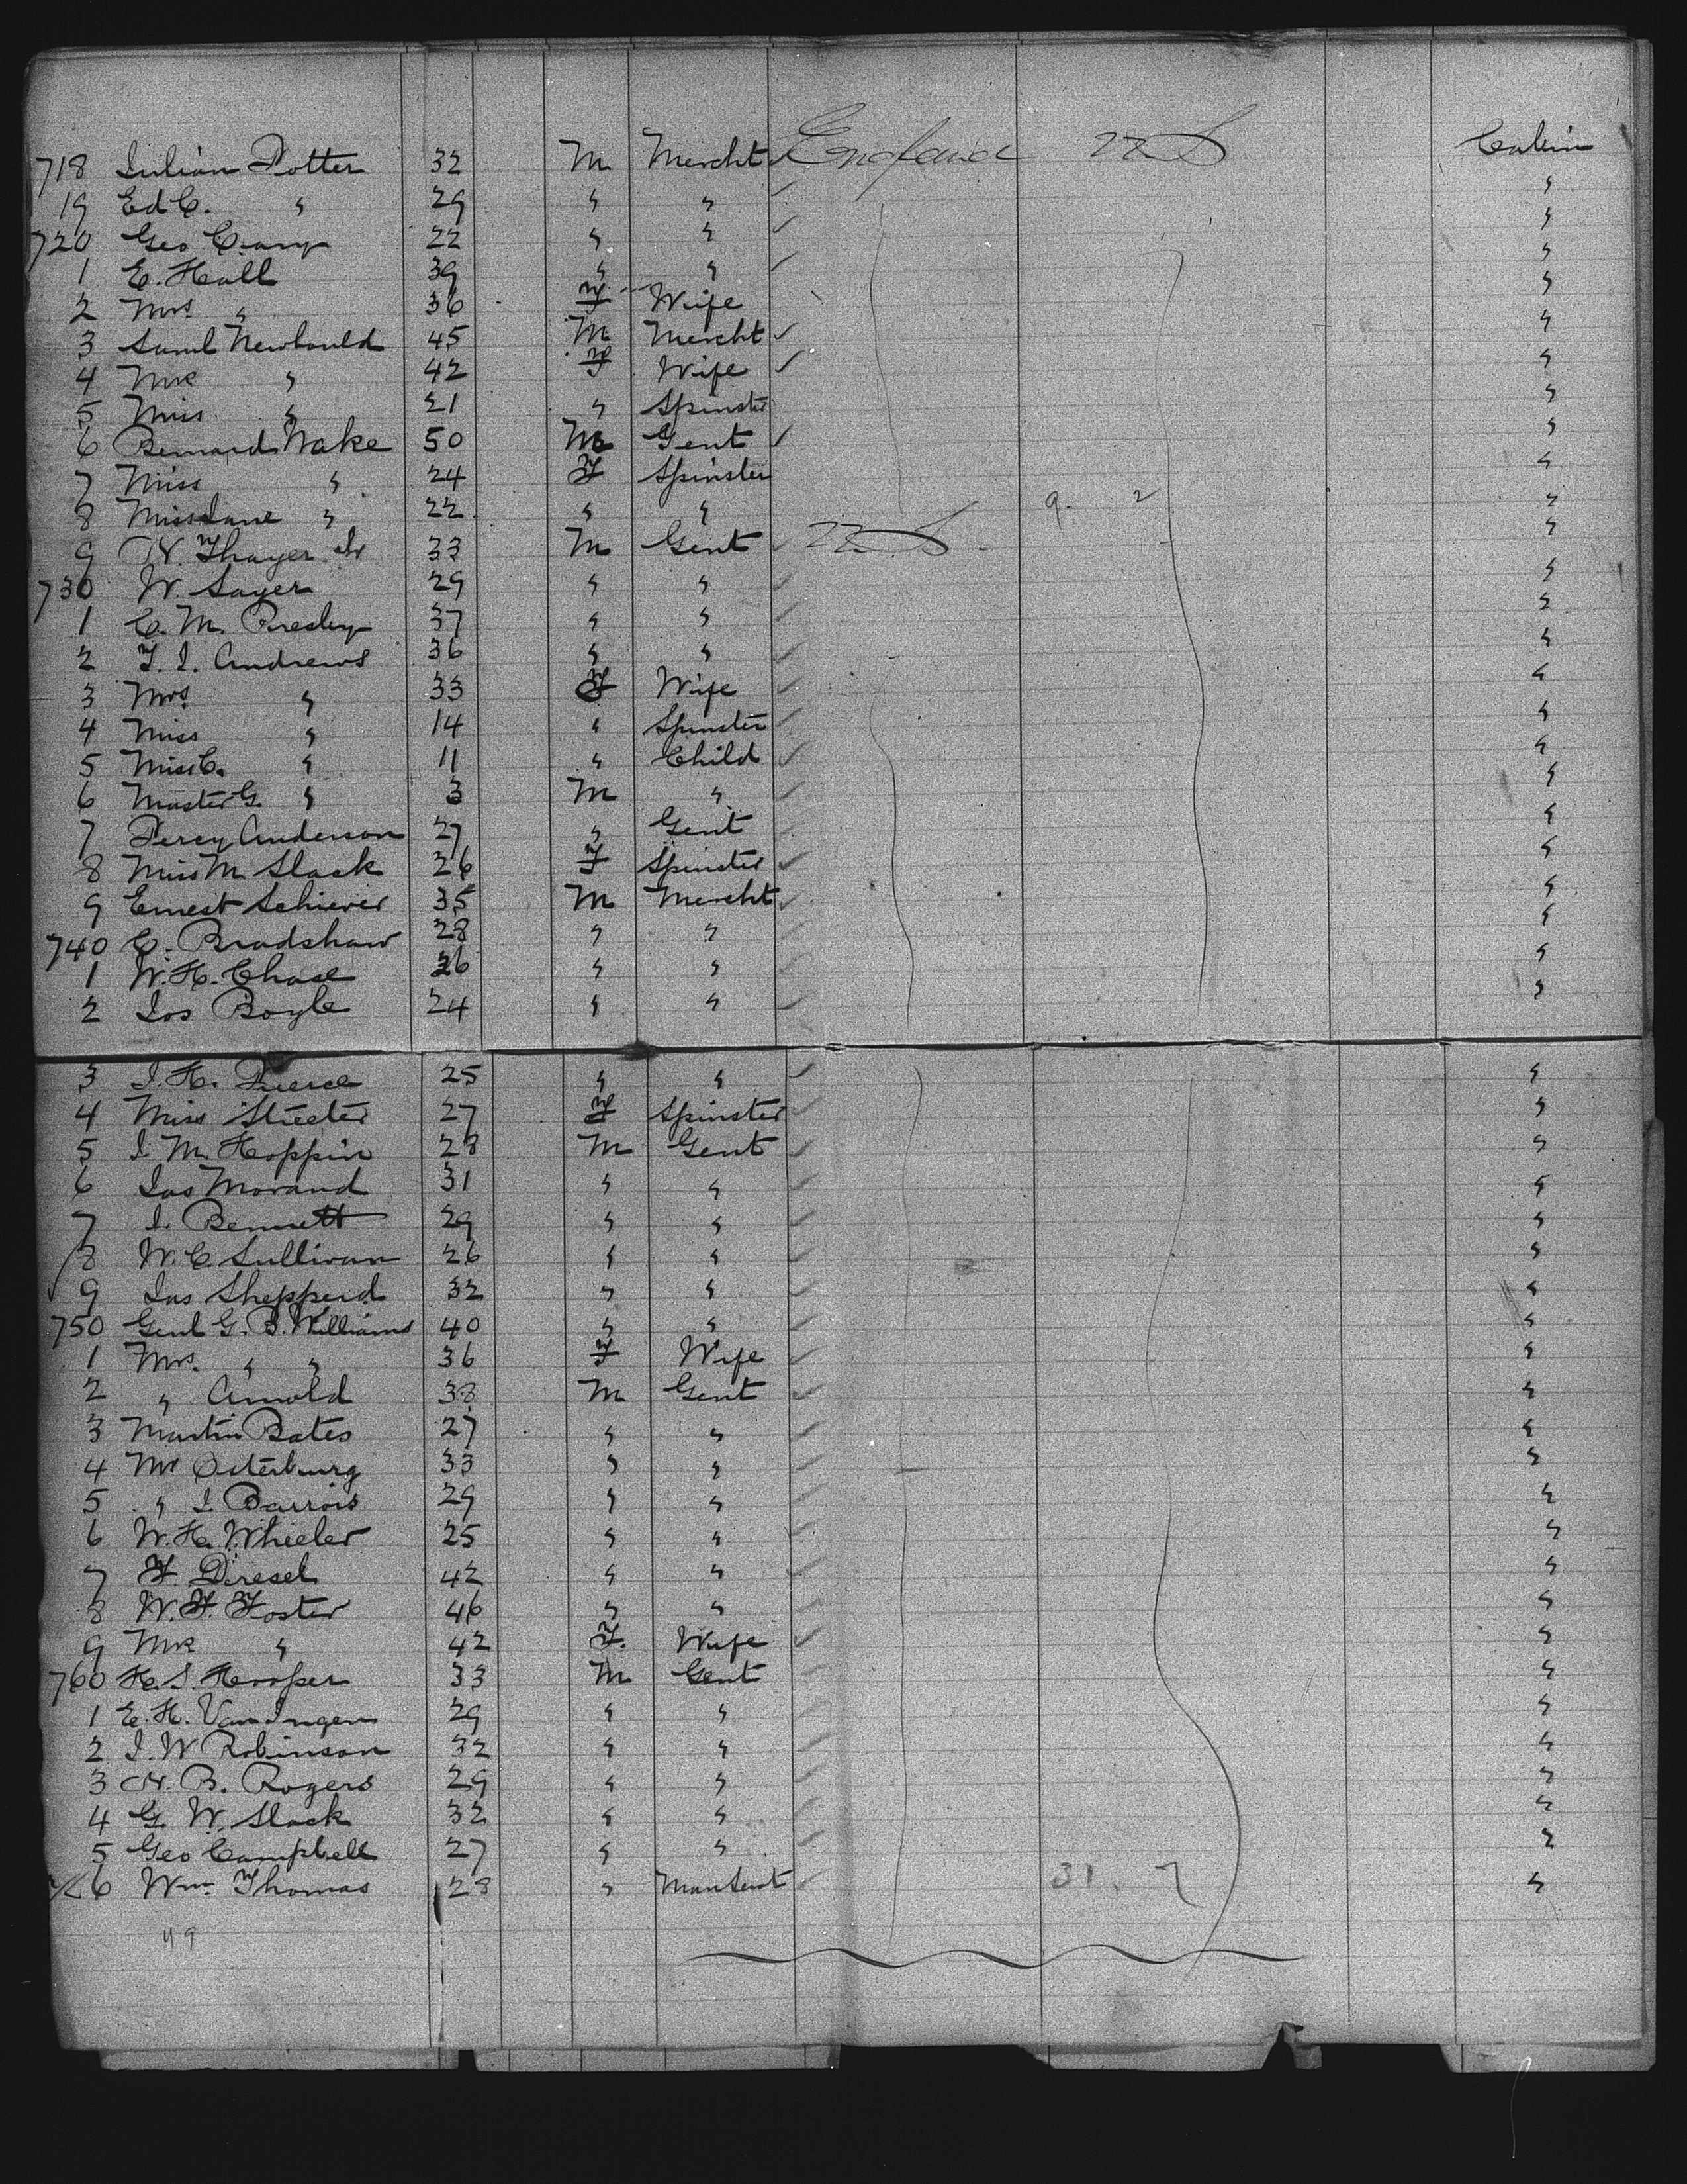 718 Julian Potter 32 M Mercht England 22 S Cabin
19 Ed C. " 29 " " "
720 Geo Cary 22 " " "
1 E. Hall 39 " " "
2 Mrs " 36 F Wife "
3 Saml Newbould 45 M Mercht "
4 Mrs " 42 F Wife "
5 Miss " 21 " Spinster "
6 Bernard Wake 50 M Gent "
7 Miss " 24 F Spinster "
8 Miss Jane " 22 " " 9. 2 "
9 N. Thayer Jr 33 M Gent 22 S "
730 W. Sayer 29 " " "
1 C. M. Presley 37 " " "
2 F. J. Andrews 36 " " "
3 Mrs " 33 F Wife "
4 Miss " 14 " Spinster "
5 Miss C. " 11 " Child "
6 Master G. " 3 M " "
7 Percy Anderson 27 " Gent "
8 Miss M. Slack 26 F Spinster "
9 Ernest Schiever 35 M Mercht "
740 C. Bradshaw 28 " " "
1 W. H. Chase 26 " " "
2 Jos Boyle 24 " " "
3 J. H. Pierce 25 " " "
4 Miss Streeter 27 F Spinster "
5 J. M. Hoppin 28 M Gent "
6 Jas Morand 31 " " "
7 J. Bennett 29 " " "
8 W. C. Sullivan 26 " " "
9 Jas Shepperd 32 " " "
750 Genl G. B. Williams 40 " " "
1 Mrs. " " 36 F Wife "
2 " Arnold 38 M Gent "
3 Martin Bates 27 " " "
4 Mr Osterburg 33 " " "
5 " J Barrois 29 " " "
6 W. H. Wheeler 25 " " "
7 F. Diesel 42 " " "
8 W. F. Foster 46 " " "
9 Mrs " 42 F. Wife "
760 H. S. Hooper 33 M Gent "
1 E. H. Van Ingen 29 " " "
2 J. W Robinson 32 " " "
3 N. B. Rogers 29 " " "
4 G. W. Slack 32 " " "
5 Geo Campbell 27 " " "
6 Wm. Thomas 28 " Man Servt 31. 7 "
49